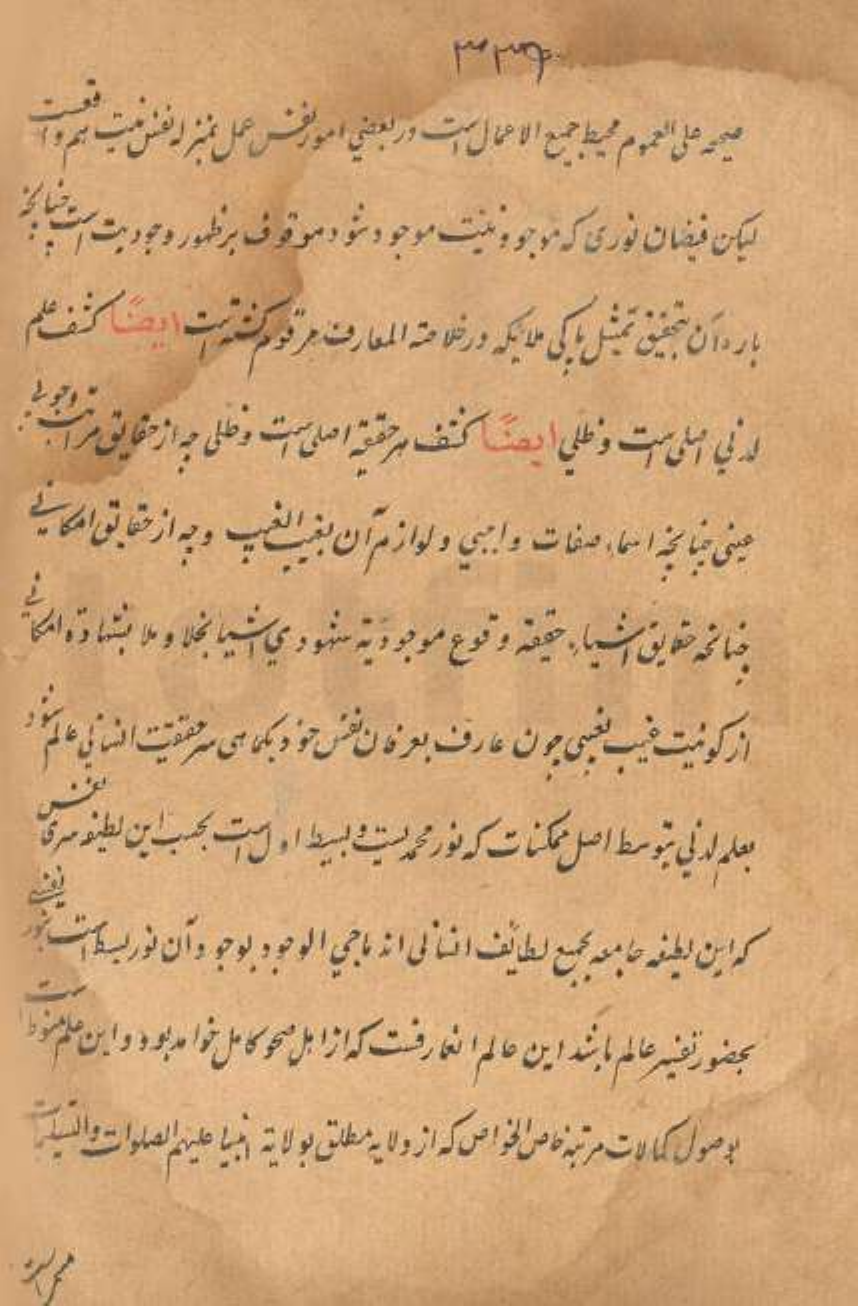 ۳۳۹
صحیحه علی العموم محیط جمیع الاعمال است در بعضی امور نفس عمل بمنزله نفس نیت هم واقعست
لیکن فیضان نوری که موجود بنیت موجود شود موقوف بر ظهور وجودیت است چنانچه
باره آن بتحقیق تمثیل پاکی ملائکه در خلاصة المعارف مرقوم گشته است ایضاً کشف علم
لدنی اصلی است و ظلی ایضاً کشف سر حقیقة اصلی است و ظلی چه از حقایق مراتب وجوبی
عینی چنانچه اسماء صفات واجبی و لوازم آن بغیب الغیب و چه از حقایق امکانی
چنانچه حقایق اشیاء حقیقة وقوع موجودیة شهودی اشیا بخلا و ملا بشهادة امکانی
از کونیت غیب بغیبی چون عارف بعرفان نفس خود بکماهی سر حقیقت انسانی عالم شود
بعلم لدنی بتوسط اصل ممکنات که نور محمدیست و بسیط اول است بحسب این لطیفه سری نفس
که این لطیفه جامعه بجمیع لطایف انسانی اند ماجی الوجود بوجود آن نور بسیط است بخور نفسی
بحضور تفسیر عالم باشد این عالم العارفست که از اهل صحو کامل خواهد بود و این علم منوط است
بوصول کمالات مرتبه خاص الخواص که از ولایة مطلق بولایة انبیا علیهم الصلوات والتسلیمات